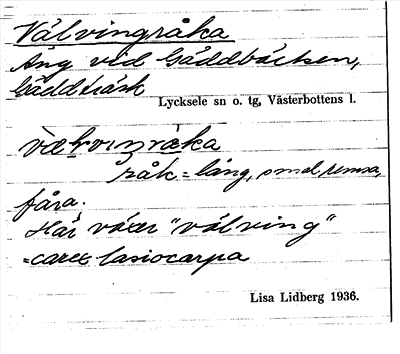 Välvingråka
Äng vid Gäddbäcken,
Gäddträsk
Lycksele sn o. tg, Västerbottens l.
råk = lång, smal remsa,
fåra.
Här växer "välving"
=carex lasiocarpa
Lisa Lidberg 1936.